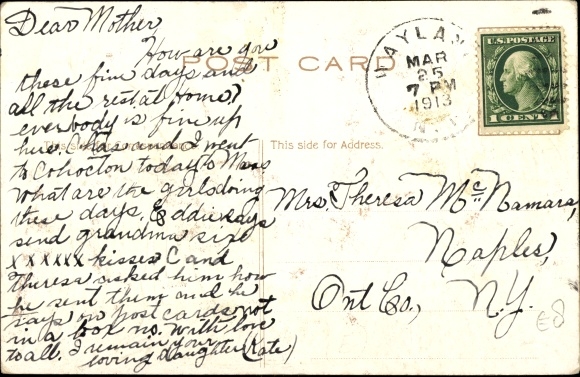 Dear Mother
How are you
these fine days and
all the rest at home?
everybody is fine up
here. Chas and I went
to Cohocton today to Mass
what are the girls doing
these days. Eddie says
send grandma six
xxxxxx kisses and
Theresa asked him how
he sent them and he
says on post cards not
in a box no. With love
to all. I remain your
loving daughter (Kate)
POST CARD
This side for Address.
WAYLAND
MAR
25
7 PM
1913
N.Y.
U.S. POSTAGE
1 CENT 1
Mrs. Theresa McNamara,
Naples,
Ont Co., N.Y.
€8